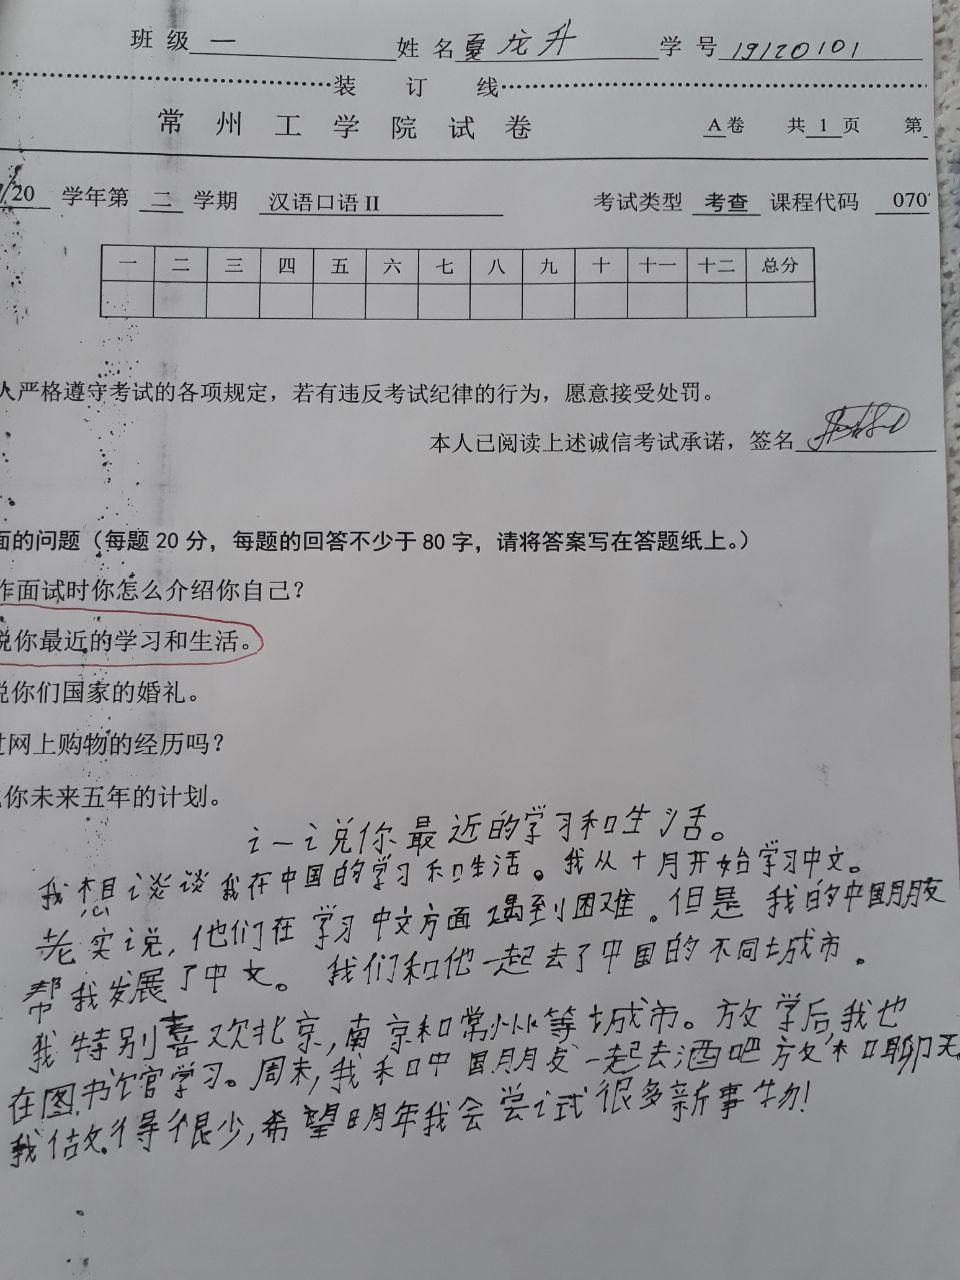 班 级 一 姓 名 夏龙升 学 号 19120101
装 订 线
常 州 工 学 院 试 卷 A 卷 共 1 页 第
/20 学年第 二 学期 汉语口语 II 考试类型 考查 课程代码 070
一 二 三 四 五 六 七 八 九 十 十一 十二 总分
人严格遵守考试的各项规定，若有违反考试纪律的行为，愿意接受处罚。
本人已阅读上述诚信考试承诺，签名
面的问题（每题 20 分，每题的回答不少于 80 字，请将答案写在答题纸上。）
作面试时你怎么介绍你自己？
说你最近的学习和生活。
说你们国家的婚礼。
过网上购物的经历吗？
你未来五年的计划。
说一说你最近的学习和生活。
我想谈谈我在中国的学习和生活。我从十月开始学习中文。
老实说，他们在学习中文方面遇到困难。但是我的中国朋友
帮我发展了中文。我们和他一起去了中国的不同城市。
我特别喜欢北京，南京和常州等城市。放学后，我也
在图书馆学习。周末，我和中国朋友一起去酒吧放松和聊天。
我做得很少，希望明年我会尝试很多新事物！